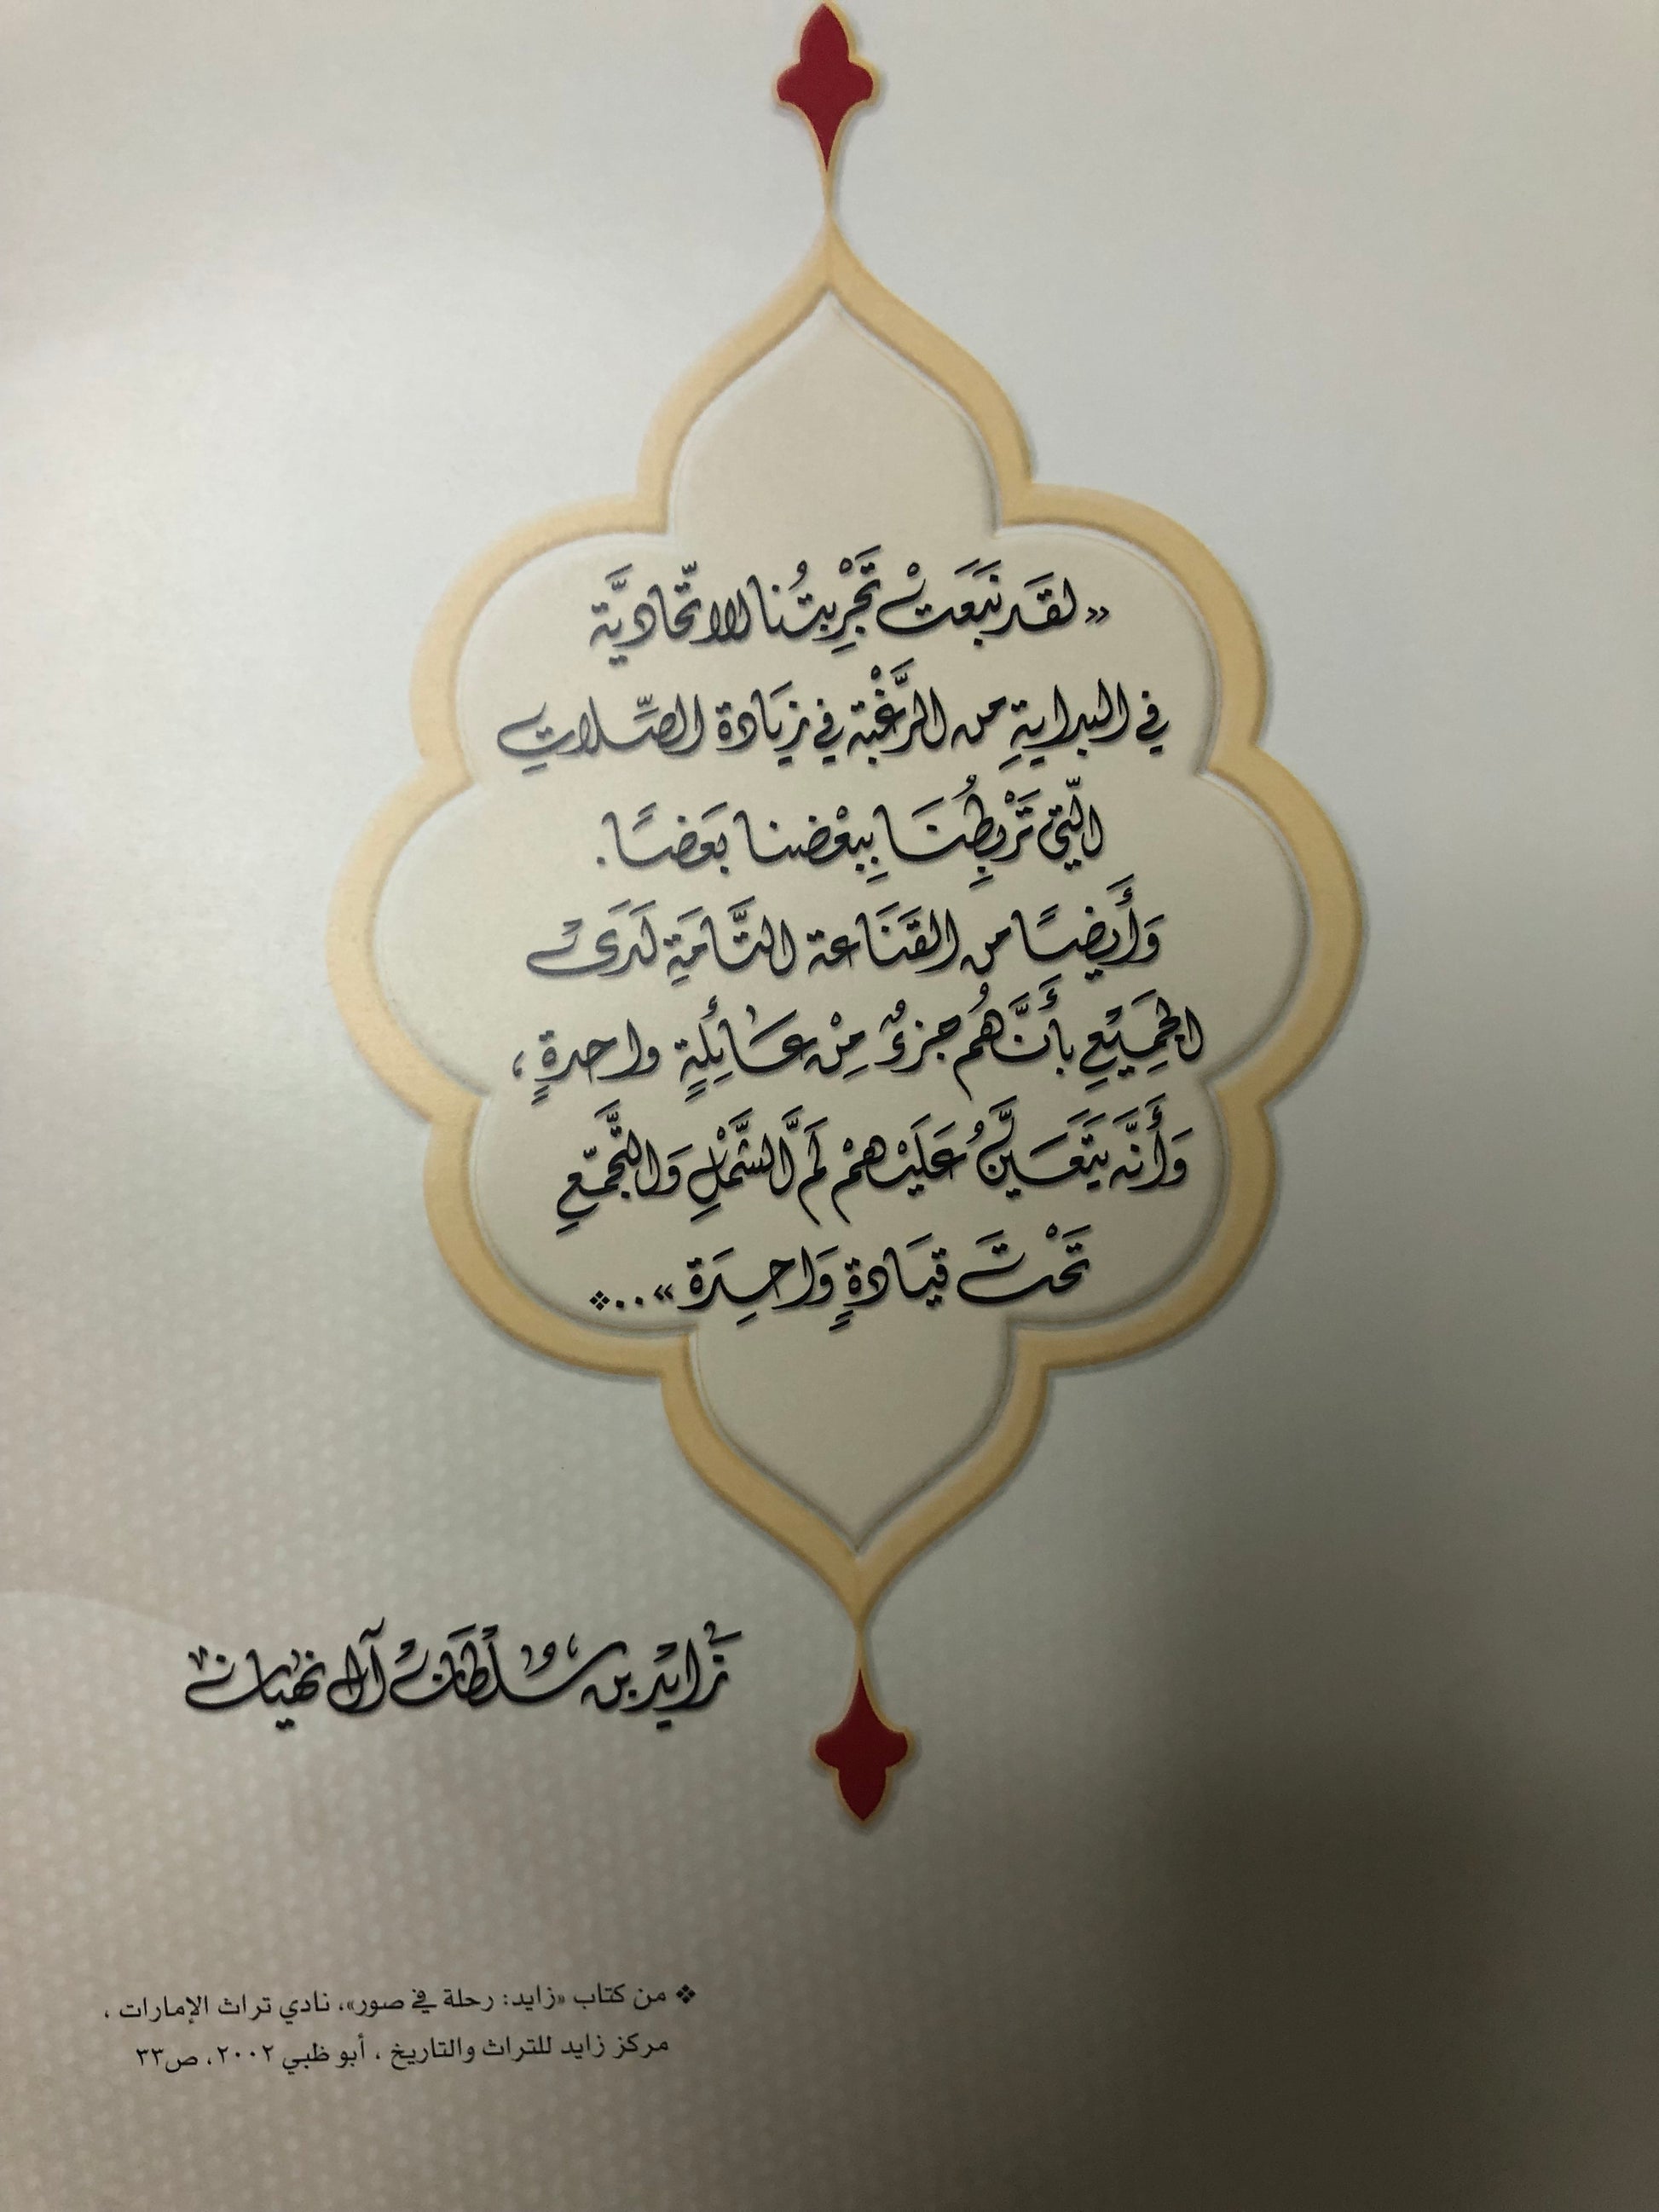 «لقَد نَبَعَتْ تَجْرِبتُنا الاتّحاديَّة
في البدايةِ من الرَّغْبة في زيَادة الصِّلاتِ
الّتي تَرْبِطُنَا بِبعْضنا بَعَضًا.
وَأَيضًا من القَنَاعة التَّامَةِ لَدَى
الجَمِيْعِ بأَنَّهُم جزءٌ مِنْ عَائِلةٍ واحدةٍ،
وَأَنَّه يَتَعَيَّنُ عَلَيْهمْ لَمَّ الشَّمْلِ وَالتَّجمّعِ
تَحْتَ قيَادةٍ وَاحِدَة»..❖
زَايد بن سُلطَان آل نهيان
❖ من كتاب «زايد: رحلة في صور»، نادي تراث الإمارات،
مركز زايد للتراث والتاريخ، أبو ظبي ٢٠٠٢، ص٣٣